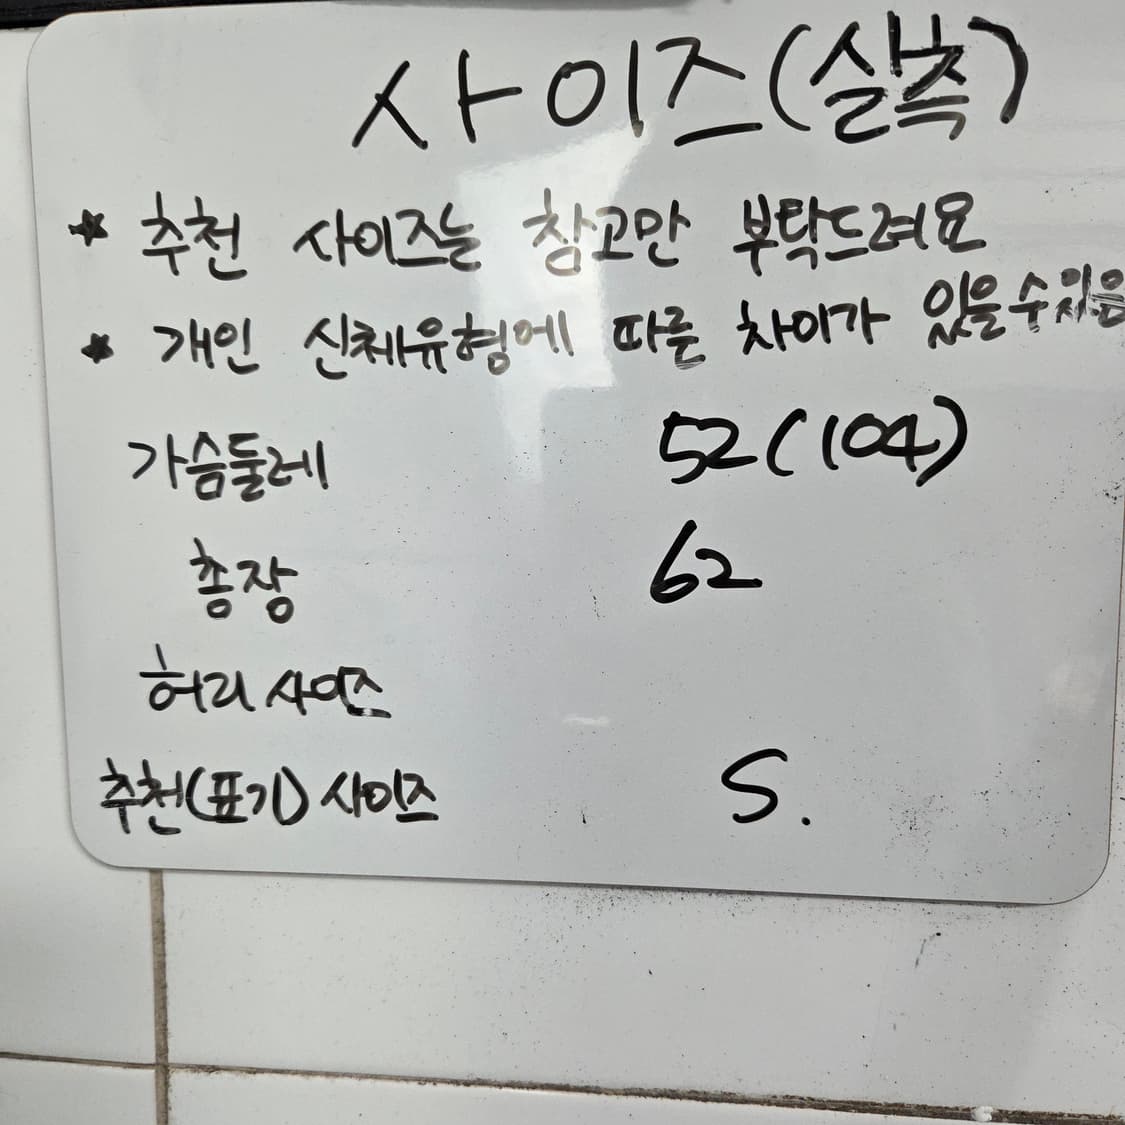 사이즈(실측)
* 추천 사이즈는 참고만 부탁드려요
* 개인 신체유형에 따른 차이가 있을수있음
가슴둘레 52(104)
총장 62
허리사이즈
추천(표기)사이즈 S.